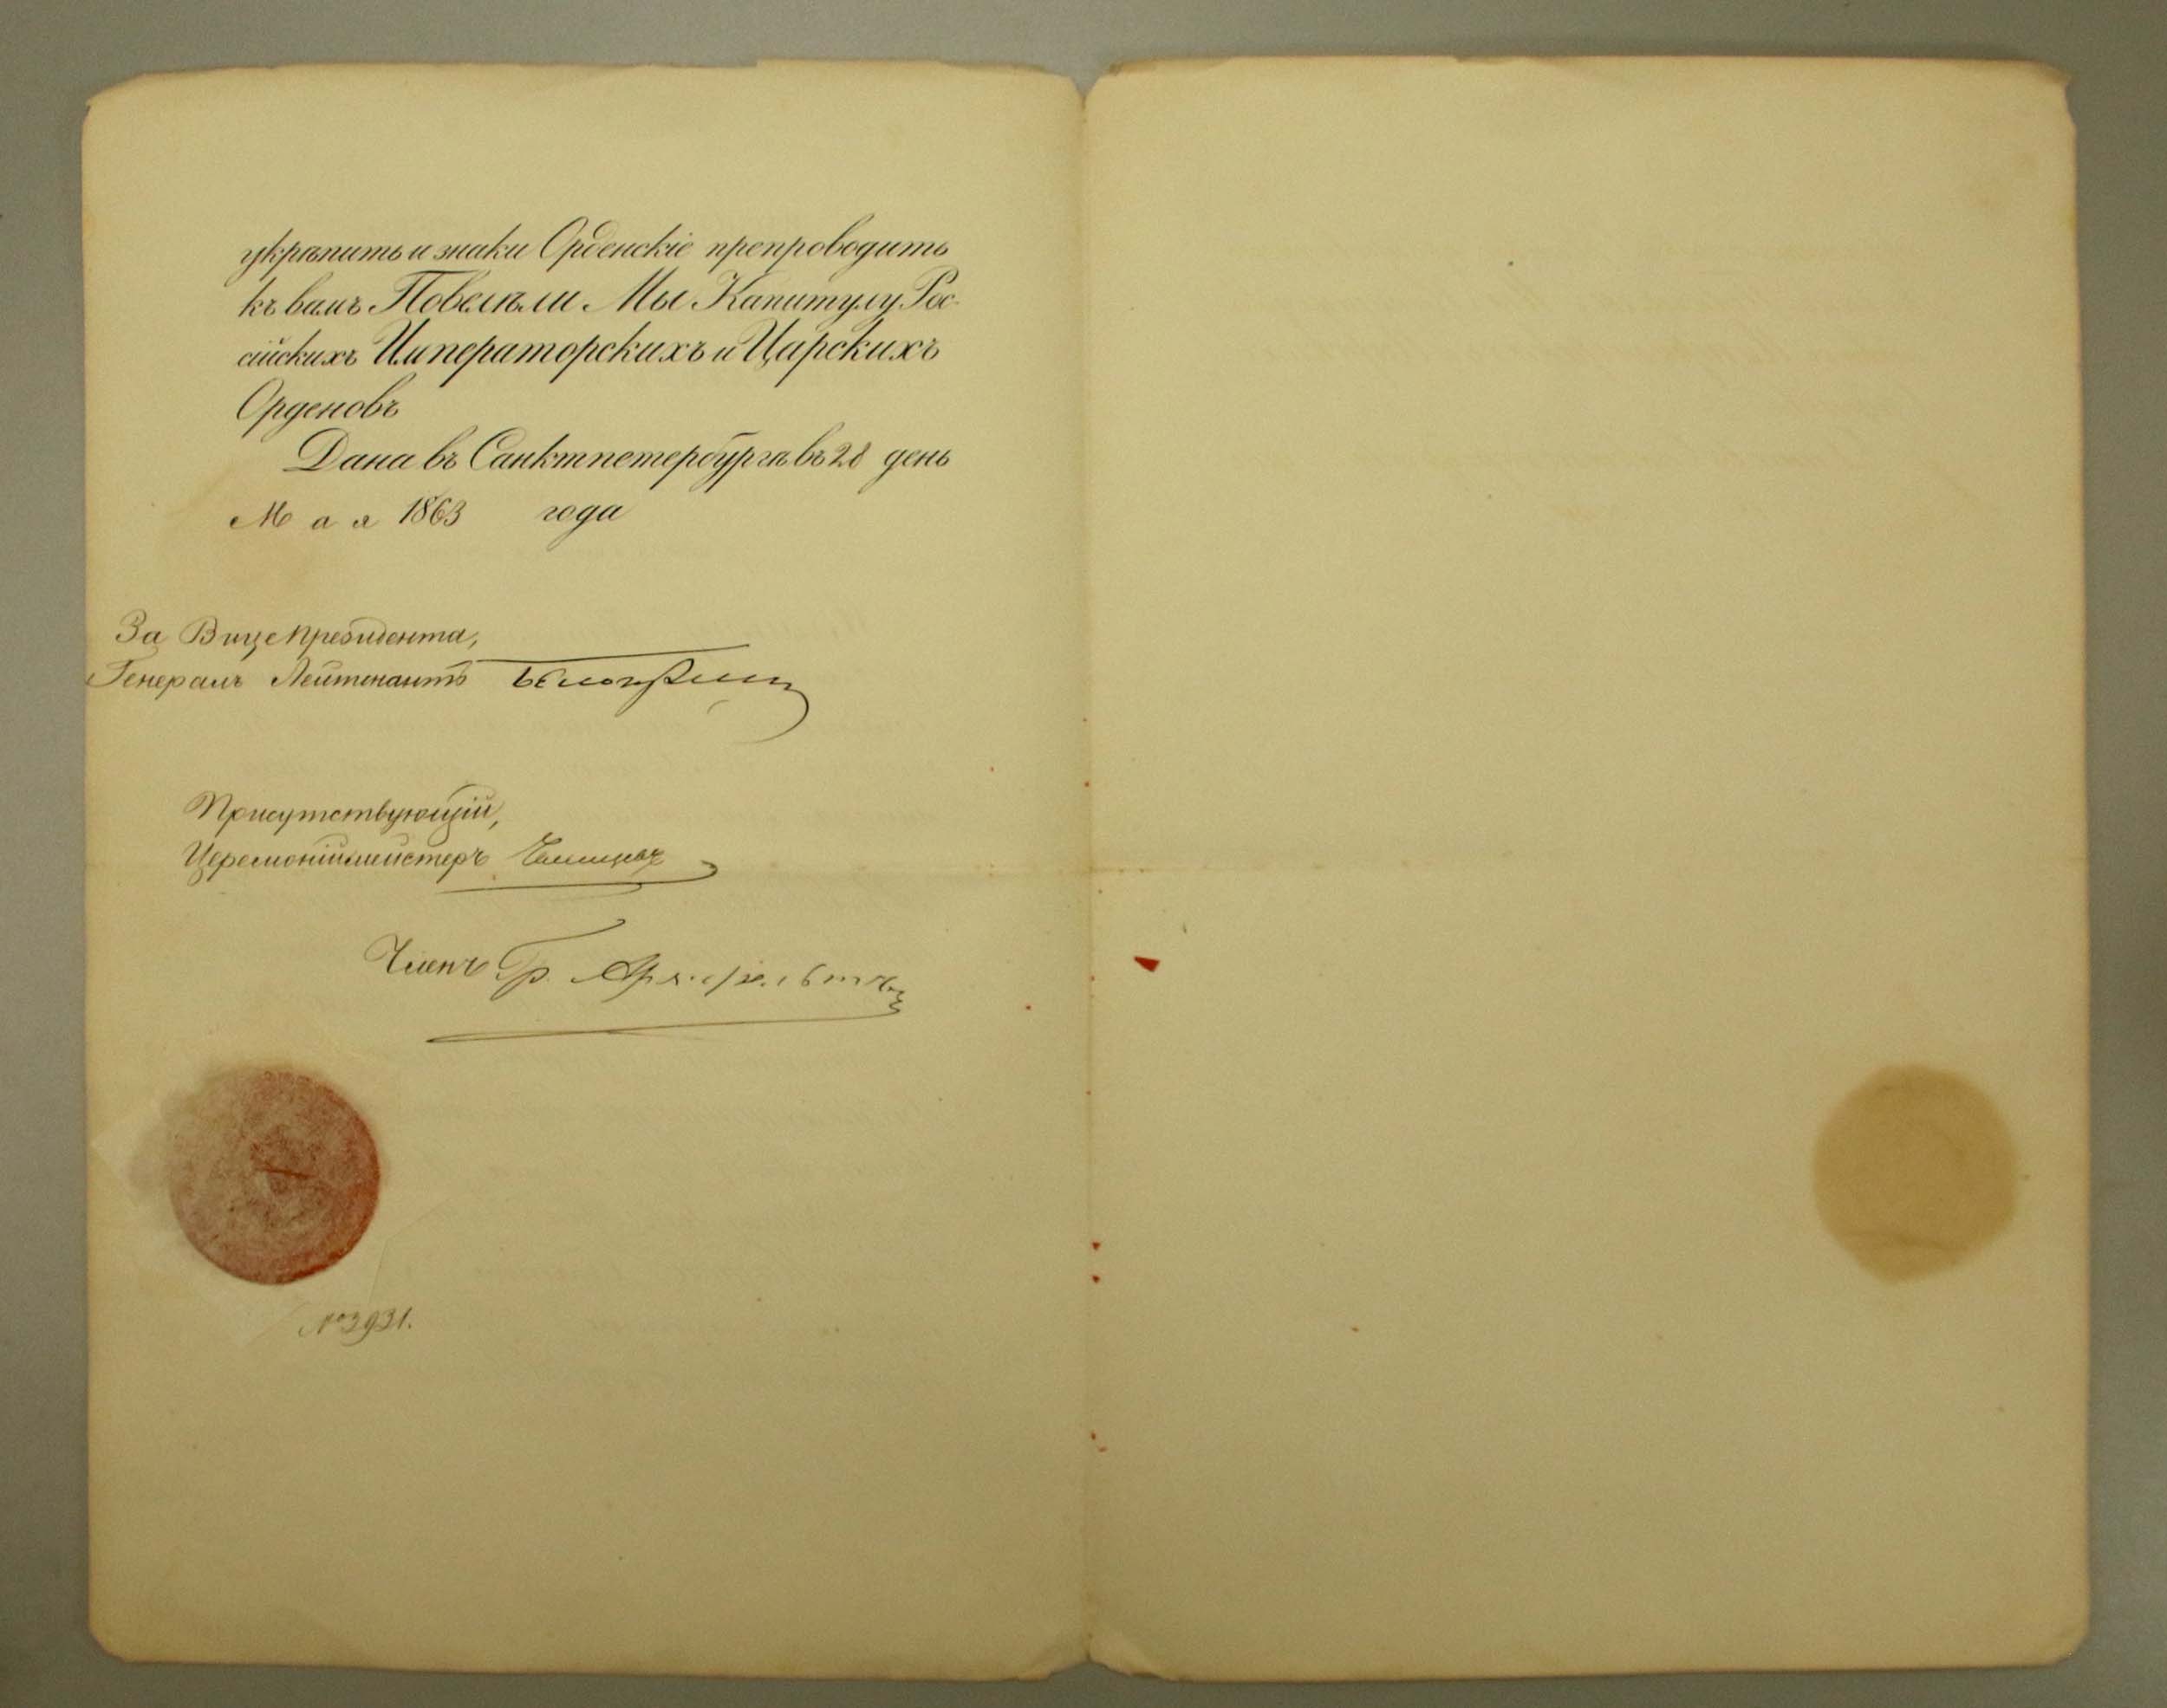 укрѣпить и знаки Орденскіе препроводить
къ вамъ Повелѣли Мы Капитулу Рос-
сійскихъ Императорскихъ и Царскихъ
Орденовъ
Дана въ Санктпетербургѣ въ 28 день
Мая 1863 года
За Вице Президента,
Генералъ Лейтенантъ
Присутствующій,
Церемоніймейстеръ
Членъ Гр.
№ 3931.